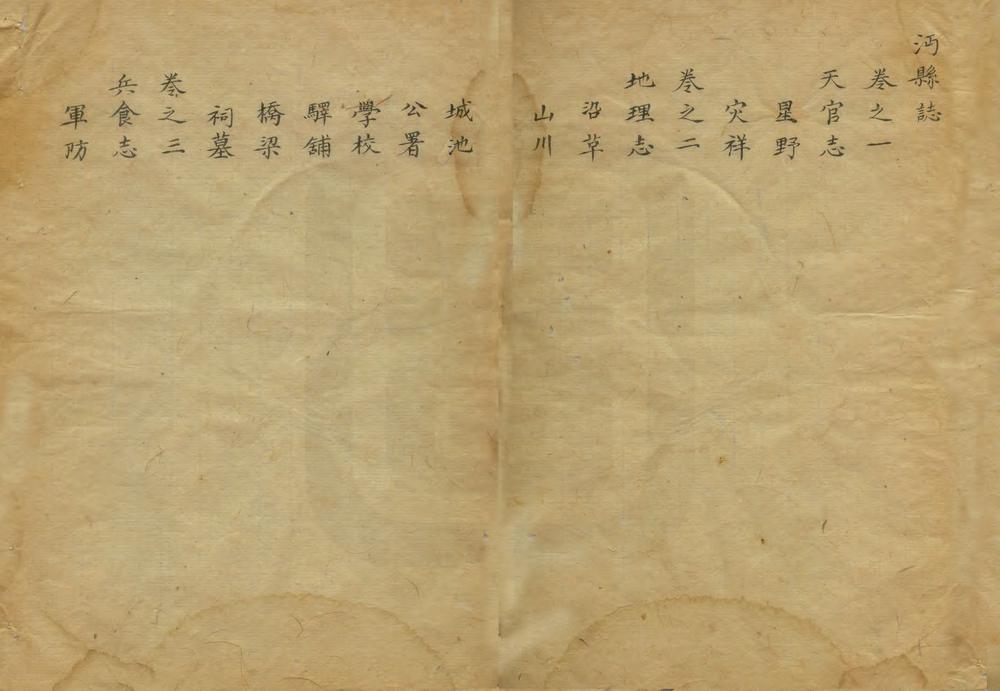 沔縣誌
卷之一
天官志
星野
灾祥
卷之二
地理志
沿革
山川
城池
公署
學校
驛舖
橋梁
祠墓
卷之三
兵食志
軍防